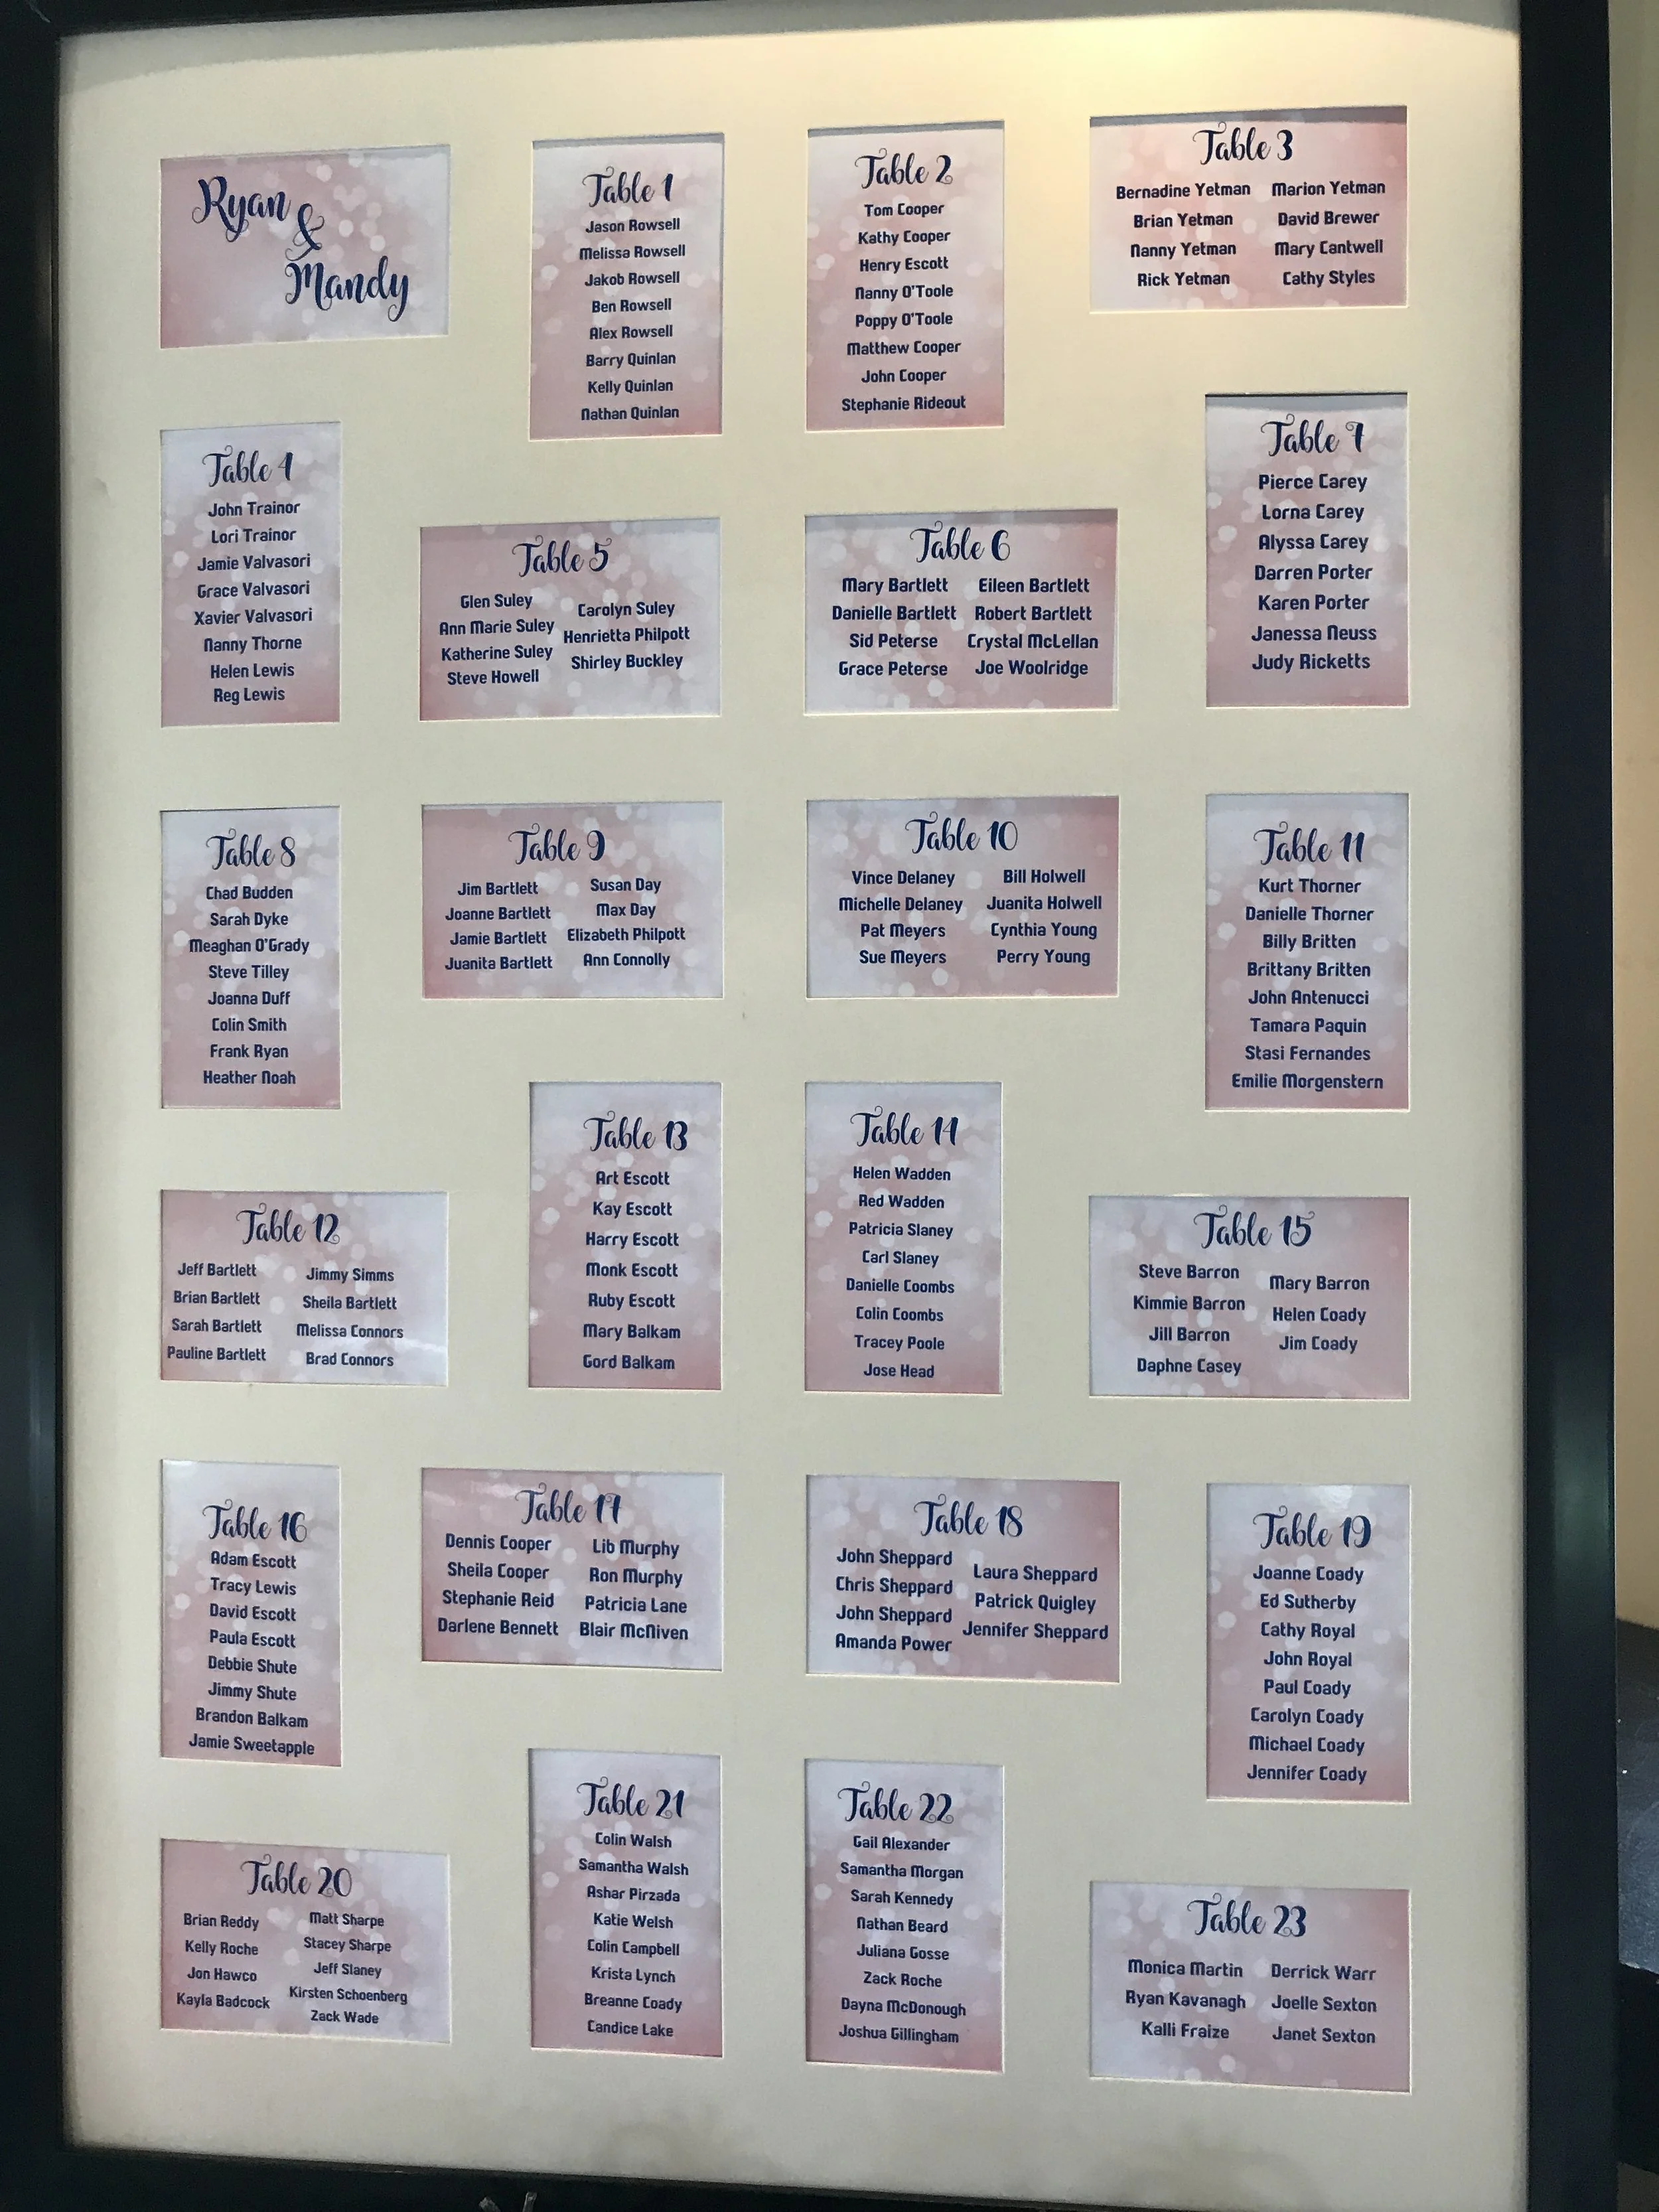 Ryan
&
Mandy
Table 1
Jason Rowsell
Melissa Rowsell
Jakob Rowsell
Ben Rowsell
Alex Rowsell
Barry Quinlan
Kelly Quinlan
Nathan Quinlan
Table 2
Tom Cooper
Kathy Cooper
Henry Escott
Nanny O'Toole
Poppy O'Toole
Matthew Cooper
John Cooper
Stephanie Rideout
Table 3
Bernadine Yetman
Brian Yetman
Nanny Yetman
Rick Yetman
Marion Yetman
David Brewer
Mary Cantwell
Cathy Styles
Table 4
John Trainor
Lori Trainor
Jamie Valvasori
Grace Valvasori
Xavier Valvasori
Nanny Thorne
Helen Lewis
Reg Lewis
Table 5
Glen Suley
Ann Marie Suley
Katherine Suley
Steve Howell
Carolyn Suley
Henrietta Philpott
Shirley Buckley
Table 6
Mary Bartlett
Danielle Bartlett
Sid Peterse
Grace Peterse
Eileen Bartlett
Robert Bartlett
Crystal McLellan
Joe Woolridge
Table 7
Pierce Carey
Lorna Carey
Alyssa Carey
Darren Porter
Karen Porter
Janessa Neuss
Judy Ricketts
Table 8
Chad Budden
Sarah Dyke
Meaghan O'Grady
Steve Tilley
Joanna Duff
Colin Smith
Frank Ryan
Heather Noah
Table 9
Jim Bartlett
Joanne Bartlett
Jamie Bartlett
Juanita Bartlett
Susan Day
Max Day
Elizabeth Philpott
Ann Connolly
Table 10
Vince Delaney
Michelle Delaney
Pat Meyers
Sue Meyers
Bill Holwell
Juanita Holwell
Cynthia Young
Perry Young
Table 11
Kurt Thorner
Danielle Thorner
Billy Britten
Brittany Britten
John Antenucci
Tamara Paquin
Stasi Fernandes
Emilie Morgenstern
Table 12
Jeff Bartlett
Brian Bartlett
Sarah Bartlett
Pauline Bartlett
Jimmy Simms
Sheila Bartlett
Melissa Connors
Brad Connors
Table 13
Art Escott
Kay Escott
Harry Escott
Monk Escott
Ruby Escott
Mary Balkam
Gord Balkam
Table 14
Helen Wadden
Red Wadden
Patricia Slaney
Carl Slaney
Danielle Coombs
Colin Coombs
Tracey Poole
Jose Head
Table 15
Steve Barron
Kimmie Barron
Jill Barron
Daphne Casey
Mary Barron
Helen Coady
Jim Coady
Table 16
Adam Escott
Tracy Lewis
David Escott
Paula Escott
Debbie Shute
Jimmy Shute
Brandon Balkam
Jamie Sweetapple
Table 17
Dennis Cooper
Sheila Cooper
Stephanie Reid
Darlene Bennett
Lib Murphy
Ron Murphy
Patricia Lane
Blair McNiven
Table 18
John Sheppard
Chris Sheppard
John Sheppard
Amanda Power
Laura Sheppard
Patrick Quigley
Jennifer Sheppard
Table 19
Joanne Coady
Ed Sutherby
Cathy Royal
John Royal
Paul Coady
Carolyn Coady
Michael Coady
Jennifer Coady
Table 20
Brian Reddy
Kelly Roche
Jon Hawco
Kayla Badcock
Matt Sharpe
Stacey Sharpe
Jeff Slaney
Kirsten Schoenberg
Zack Wade
Table 21
Colin Walsh
Samantha Walsh
Ashar Pirzada
Katie Welsh
Colin Campbell
Krista Lynch
Breanne Coady
Candice Lake
Table 22
Gail Alexander
Samantha Morgan
Sarah Kennedy
Nathan Beard
Juliana Gosse
Zack Roche
Dayna McDonough
Joshua Gillingham
Table 23
Monica Martin
Ryan Kavanagh
Kalli Fraize
Derrick Warr
Joelle Sexton
Janet Sexton